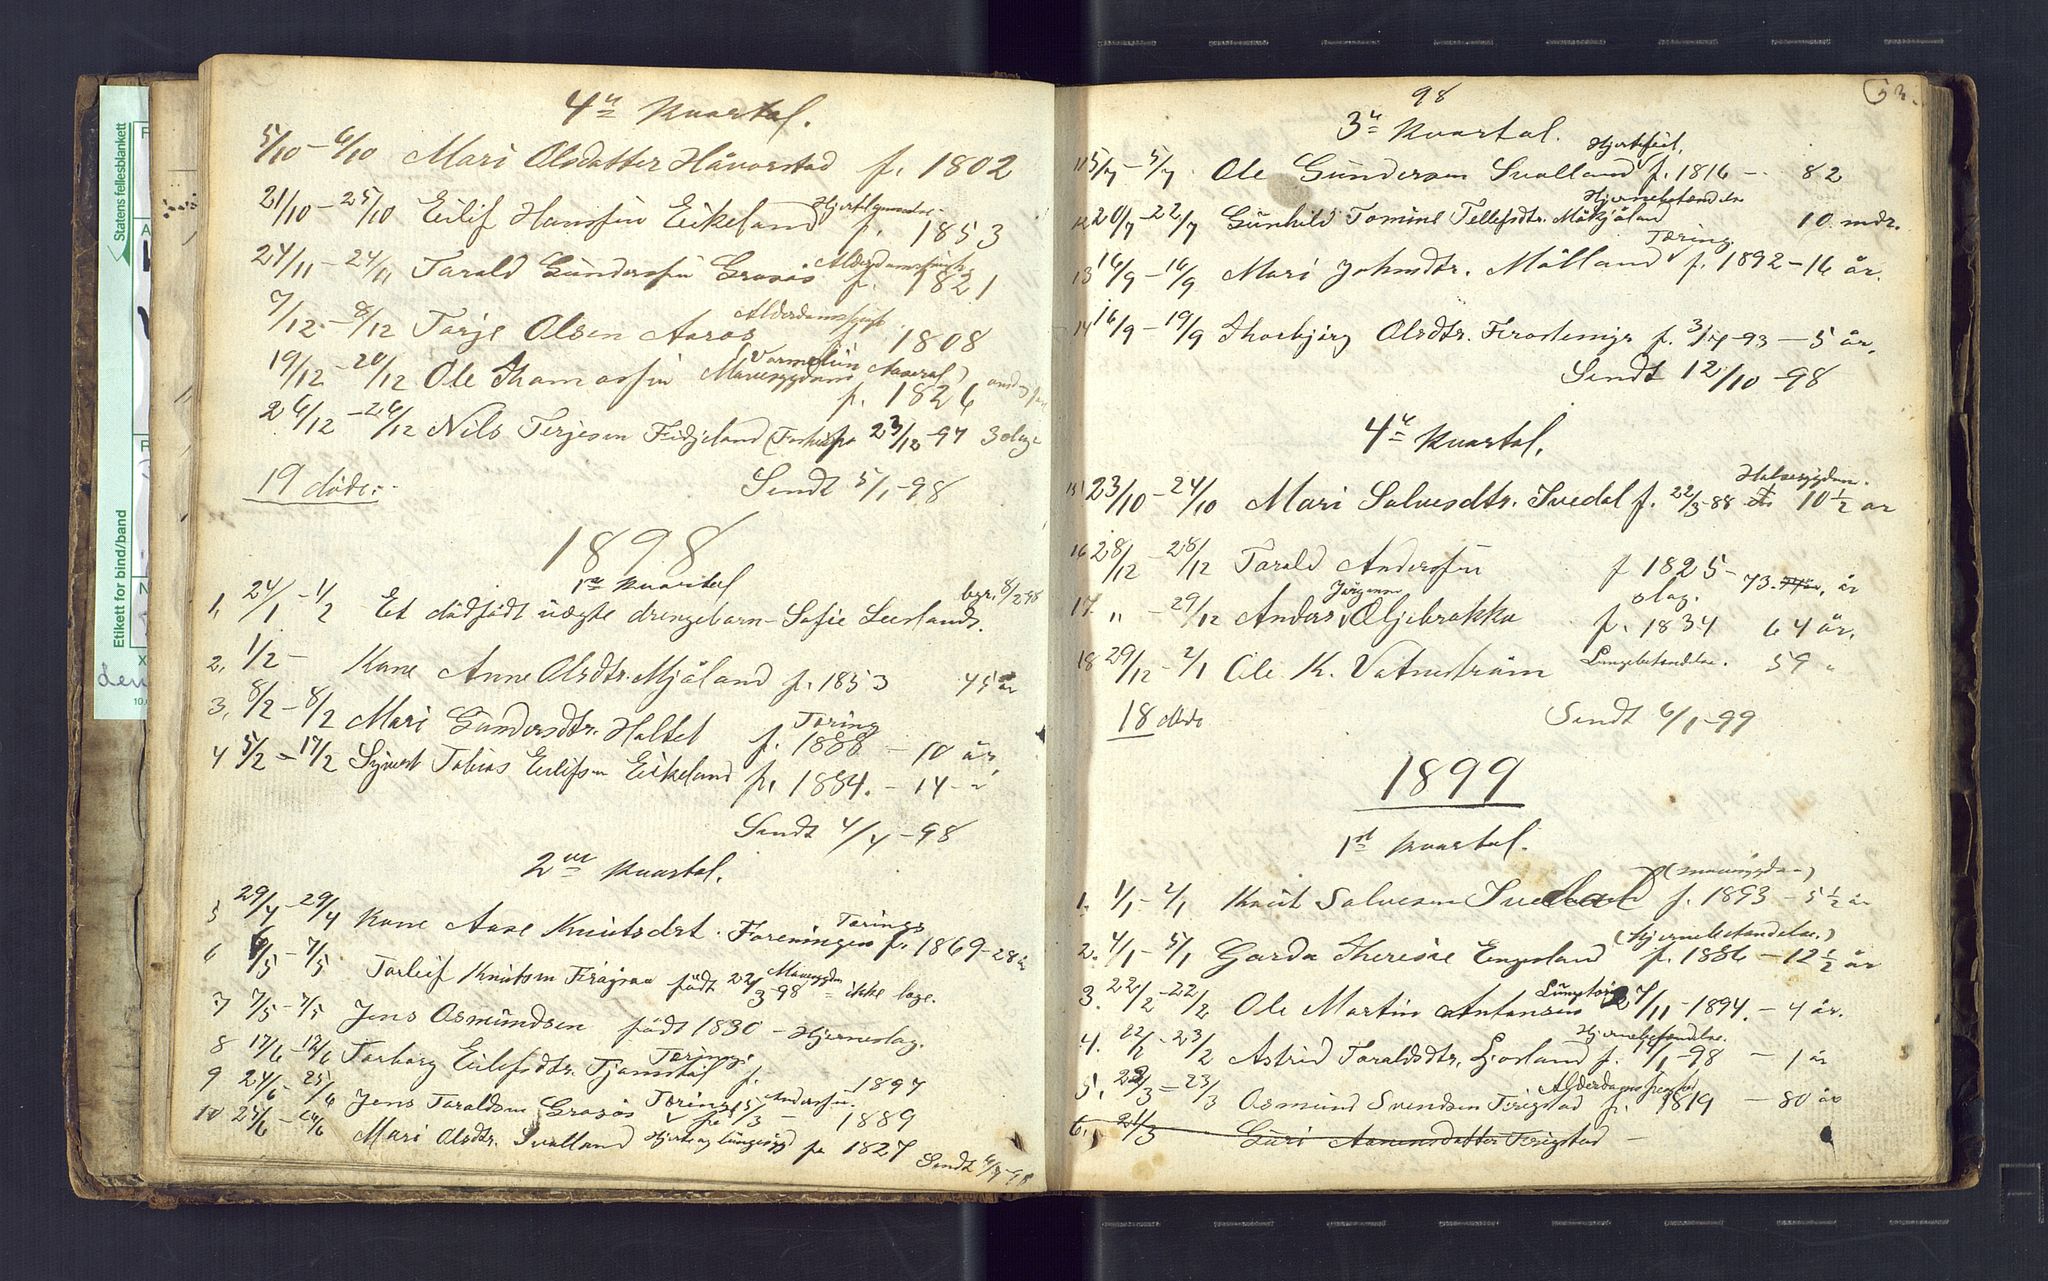 4de Kvartal.
5/10 – 6/10 Mari Olsdatter Håvorstad f. 1802
21/10 – 25/10 Eilif Hanssen Eikeland f. 1853
24/11 – 24/11 Tarald Gundersen Grosås f. 1821
Alderdoms
7/12 – 8/12 Tarje Olsen Aaros 1808
19/12 – 20/12 Ole Thomassen f. 1826
26/12 – 26/12 Nils Terjesen Fidjeland 23/12 –97 3 dage
19 døde. Sendt 5/1 –98
1898
1ste Kvartal
1. 24/1 – 1/2 Et dødfødt uægte drengebarn – Sofie bgr. 8/2 98
2. 1/2 – Kone Anne Olsdtr. Mjåland f. 1853 45 år
3. 8/2 – 8/2 Mari Gundersdtr. Haltet f. 1888 – 10 år,
Tæring
4 5/2 – 17/2 Syvert Tobias Eilifsen Eikeland f. 1884. – 14 – "
Sendt 4/4 –98
2den Kvartal.
5 29/4 – 29/4 Kone Aase Knutsdtr. Foreningen f. 1869 – 28 år
Tæring
6 6/5 – 7/5 Torleif Knutsen født 22/3 –98 – ikke lage.
Mavesygdom
7 7/5 – 7/5 Jens Osmundsen født 1830 – Hjerneslag.
8 17/6 – 17/6 Torborg Eilefsdtr. Tjomstøl f. 1897
Tæring
9 24/6 – 25/6 Jens Taraldsen Grosås 1889
Tæring
10 25/6 – 26/6 Mari Olsdtr. Svalland f. 1827
Hjerte og lungesygd
Sendt 4/7 –98
98
3de Kvartal.
Hjertefeil.
11 5/7 – 5/7. Ole Gundersen Svalland f. 1816 – 82
Hjernebetændelse
12 20/7 – 22/7 Gunhild Tomine Tellefsdtr. Måkjåland 10 mdr.
Tæring
13 16/9 – 16/9 Mari Johnsdtr. Målland f. 1892 – 16 år.
14 16/9 – 19/9 Thorbjørg Olsdtr. Frostemyr f. 3/4 –93 – 5 år,
Sendt 12/10 –98
4de Kvartal.
Halsesygdom.
15 23/10 – 24/10 Mari Salvesdtr. Svedal f. 22/3 –88 10 1/2 år
16 28/12 – 28/12 Tarald Anderssen f 1825 – 73. år
slag.
17. " – 29/12 Anders Jørgensen Oljebrækka f. 1834 64 år.
18 29/12 – 2/1 Ole K. Vatnestrøm Lungebetændelse. 59 "
18 døde Sendt 6/1 –99
1899
1st Kvartal.
(mavesygdom)
1. 1/1 – 2/1 Knut Salvesen Svedal f. 1893 – 5 1/2 år
(Hjernebetændelse.)
2. 4/1 – 5/1 Gorda Theresie Engesland f. 1886 – 12 1/2 år
Lungetæring
3. 22/2 – 22/2 Ole Martin Antonsen 27/11 – 1894. – 4 år.
Hjernebetændelse.
4. 22/2 – 23/2 Astrid Taraldsdtr. f. 1/1 –98 – 1 år
Alderdomssvaghed
5. 22/3 – 23/3 Osmund Svendsen Frigstad f. 1819 – 80 år
6. 21/3 Guri Aanensdatter Frigstad –
Statens fellesblankett
Etikett for bind/band